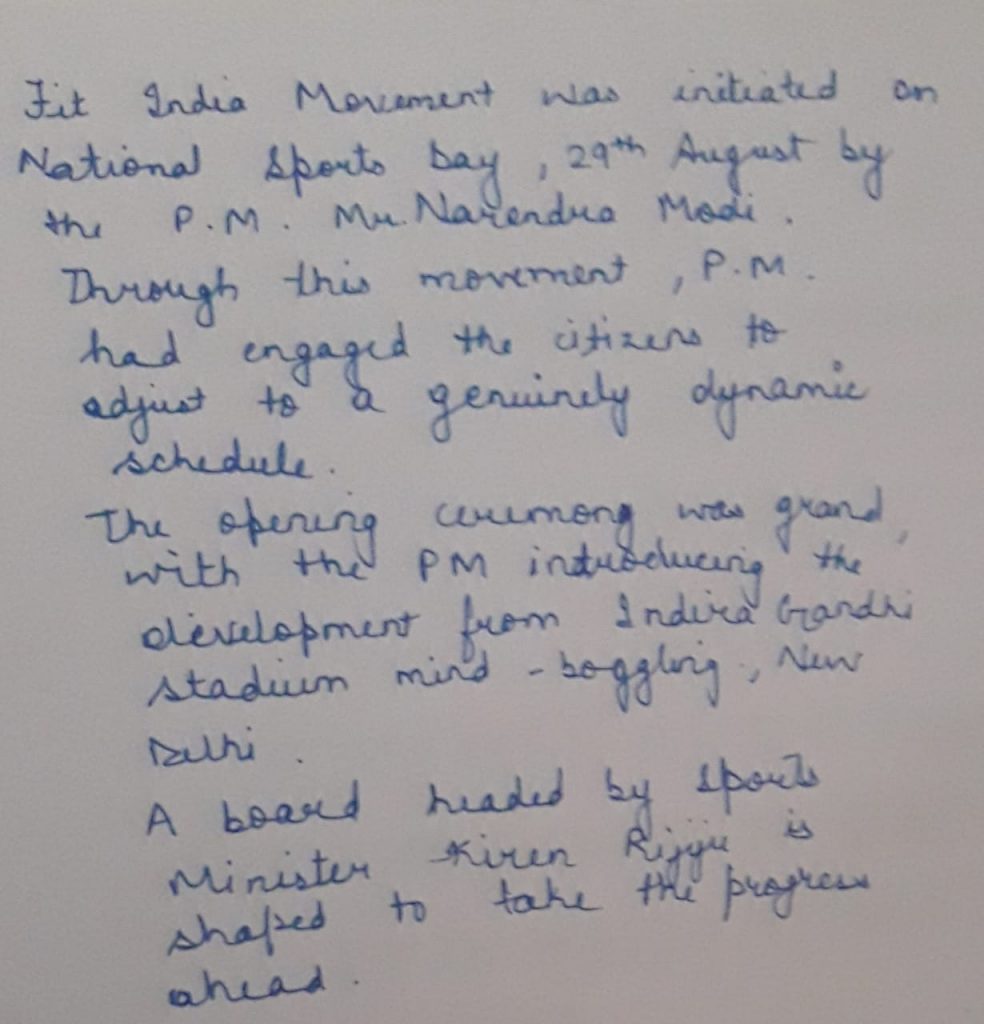 Fit India Movement was initiated on
National Sports Day, 29th August by
the P.M. Mr. Narendra Modi.
Through this movement, P.M.
had engaged the citizens to
adjust to a genuinely dynamic
schedule.
The opening ceremony was grand,
with the PM introducing the
development from Indira Gandhi
stadium mind-boggling, New
Delhi.
A board headed by Sports
Minister Kiren Rijiju is
shaped to take the progress
ahead.